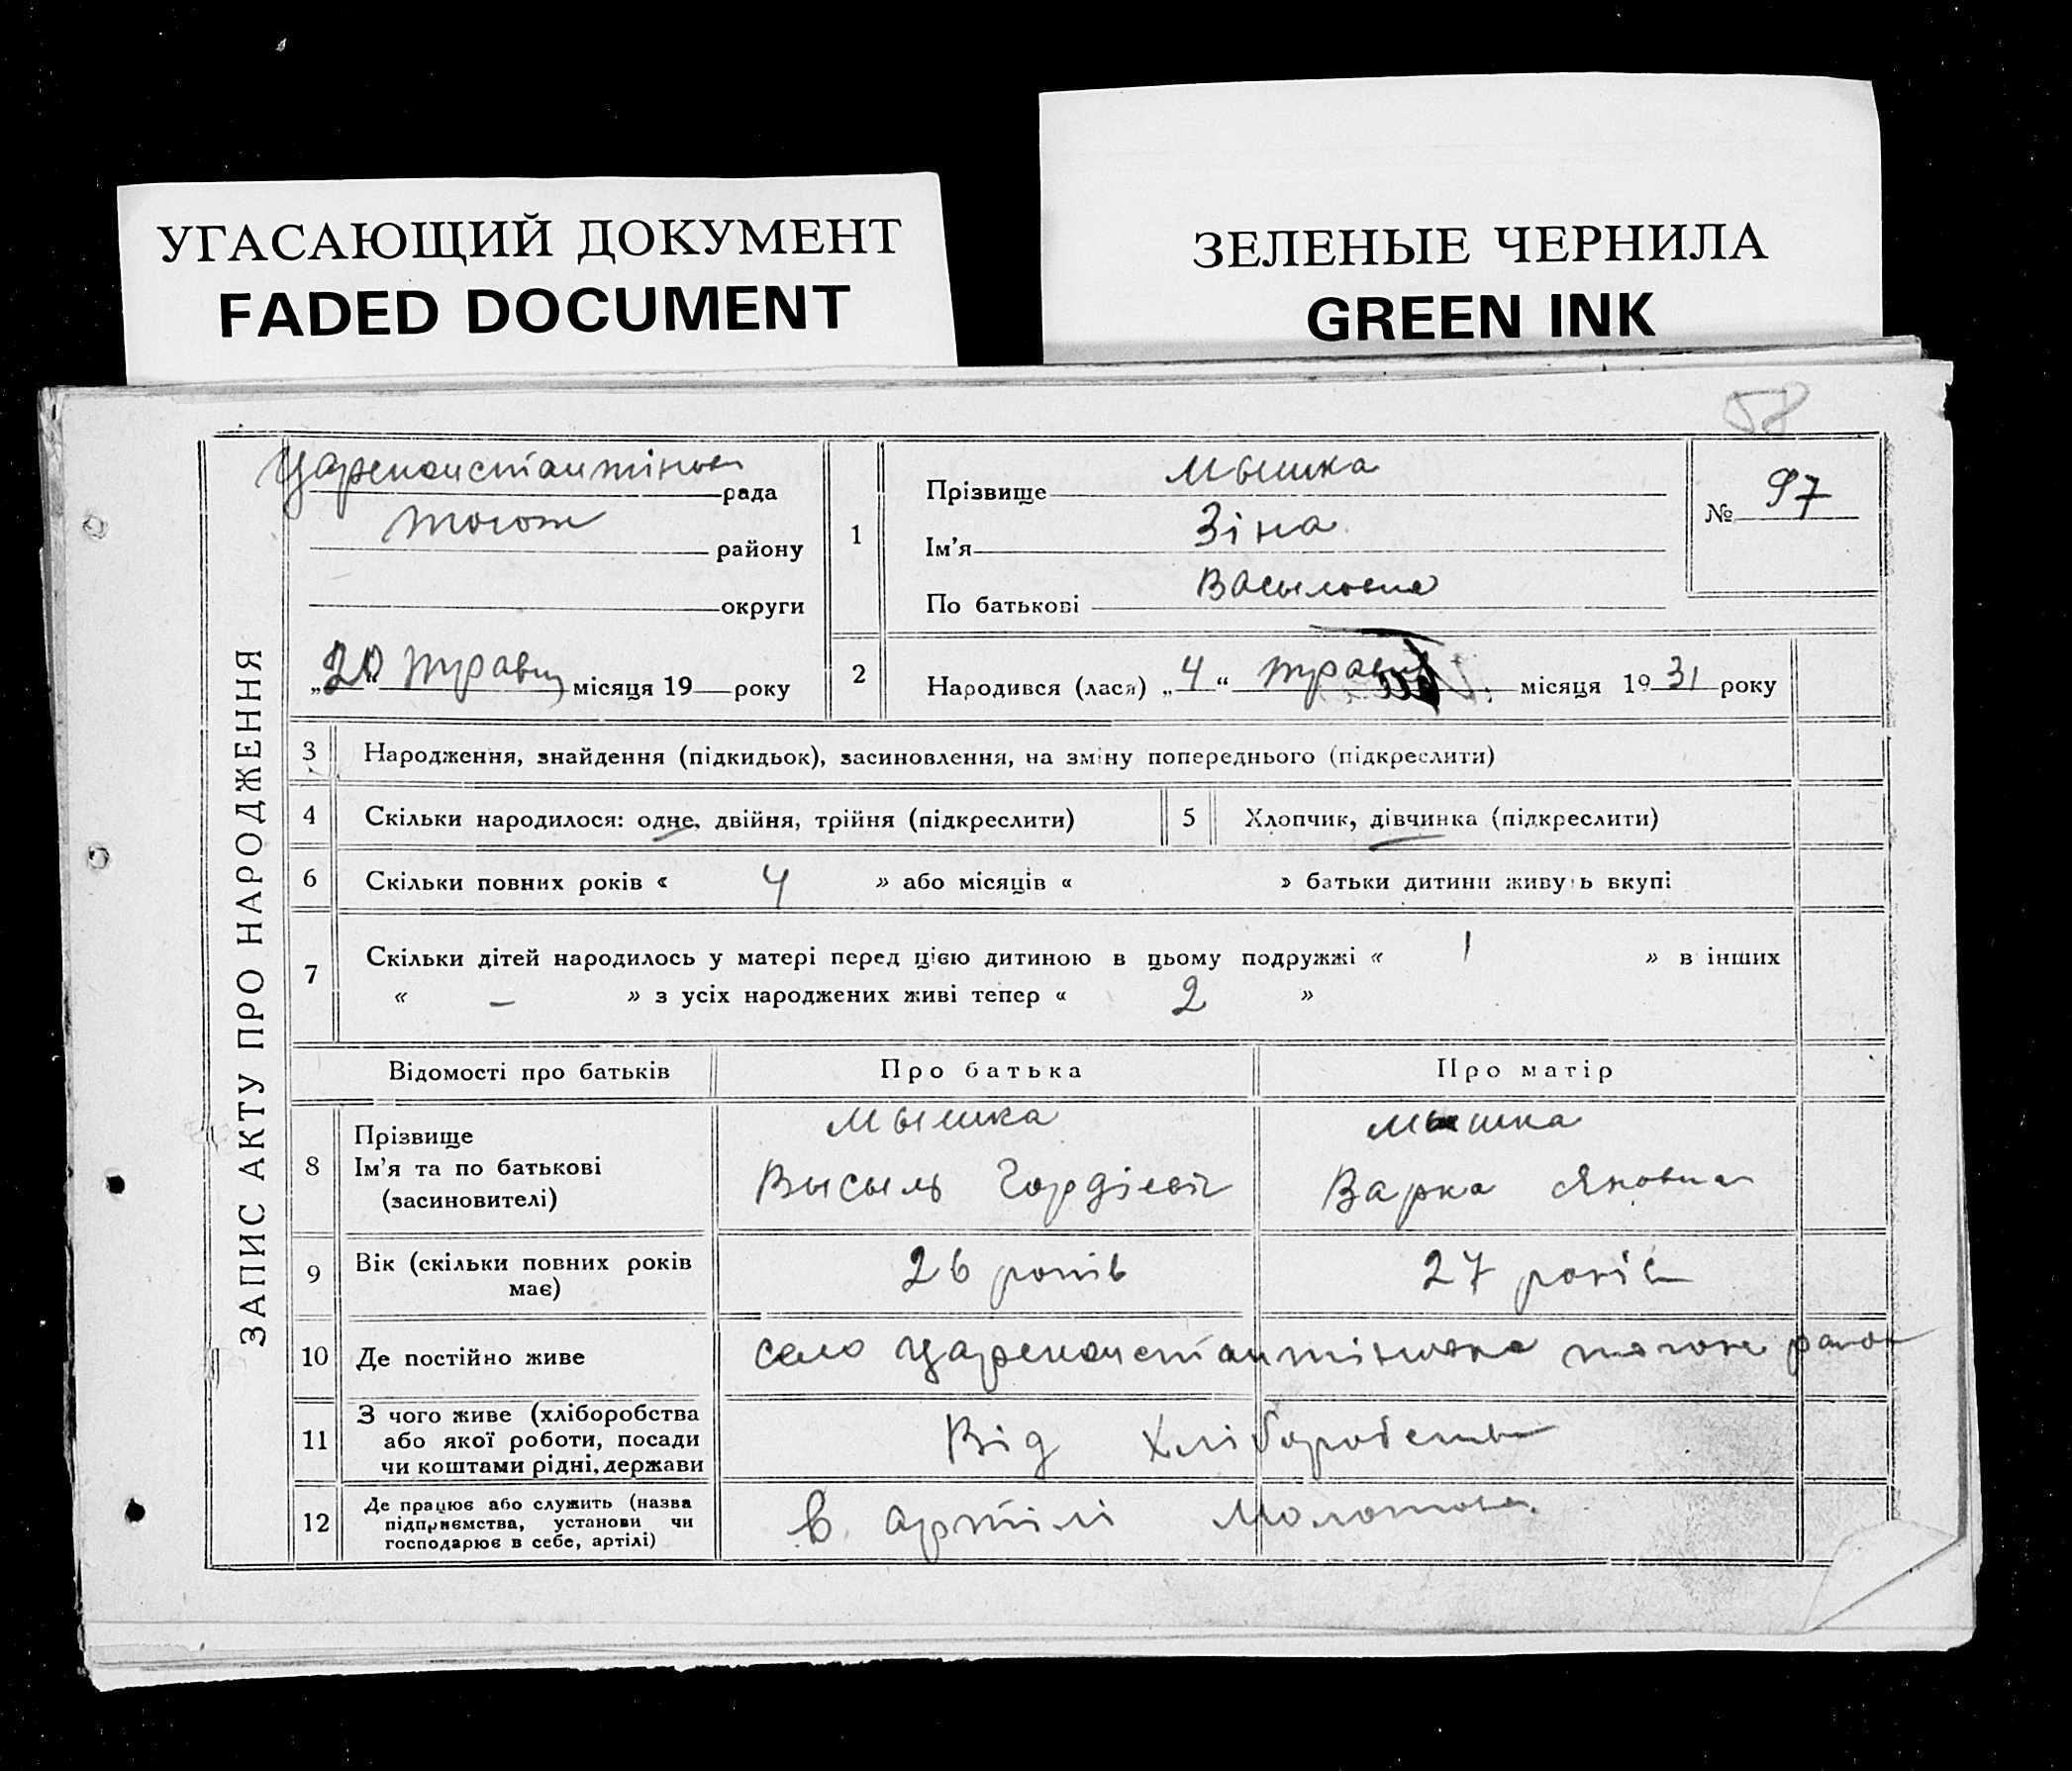 УГАСАЮЩИЙ ДОКУМЕНТ
FADED DOCUMENT
ЗЕЛЕНЫЕ ЧЕРНИЛА
GREEN INK
58
ЗАПИС АКТУ ПРО НАРОДЖЕННЯ
рада
району
округи
„20“ травня місяця 19 року
1
Прізвище Мышка
Ім'я Зіна
По батькові Васыловна
№ 97
2
Народився (лася) „4“ травня місяця 1931 року
3 Народження, знайдення (підкидьок), засиновлення, на зміну попереднього (підкреслити)
4 Скільки народилося: одне, двійня, трійня (підкреслити)
5 Хлопчик, дівчинка (підкреслити)
6 Скільки повних років « 4 » або місяців « » батьки дитини живуть вкупі
7 Скільки дітей народилось у матері перед цією дитиною в цьому подружжі « 1 » в інших
« – » з усіх народжених живі тепер « 2 »
Відомості про батьків Про батька Про матір
8 Прізвище
Ім'я та по батькові
(засиновителі)
Мышка
Высыль Гордієвіч
Мышка
Варка Яковна
9 Вік (скільки повних років
має)
26 років
27 років
10 Де постійно живе
село
11 З чого живе (хліборобства
або якої роботи, посади
чи коштами рідні, держави
Від хліборобства
12 Де працює або служить (назва
підприємства, установи чи
господарює в себе, артілі)
в артілі Молотова